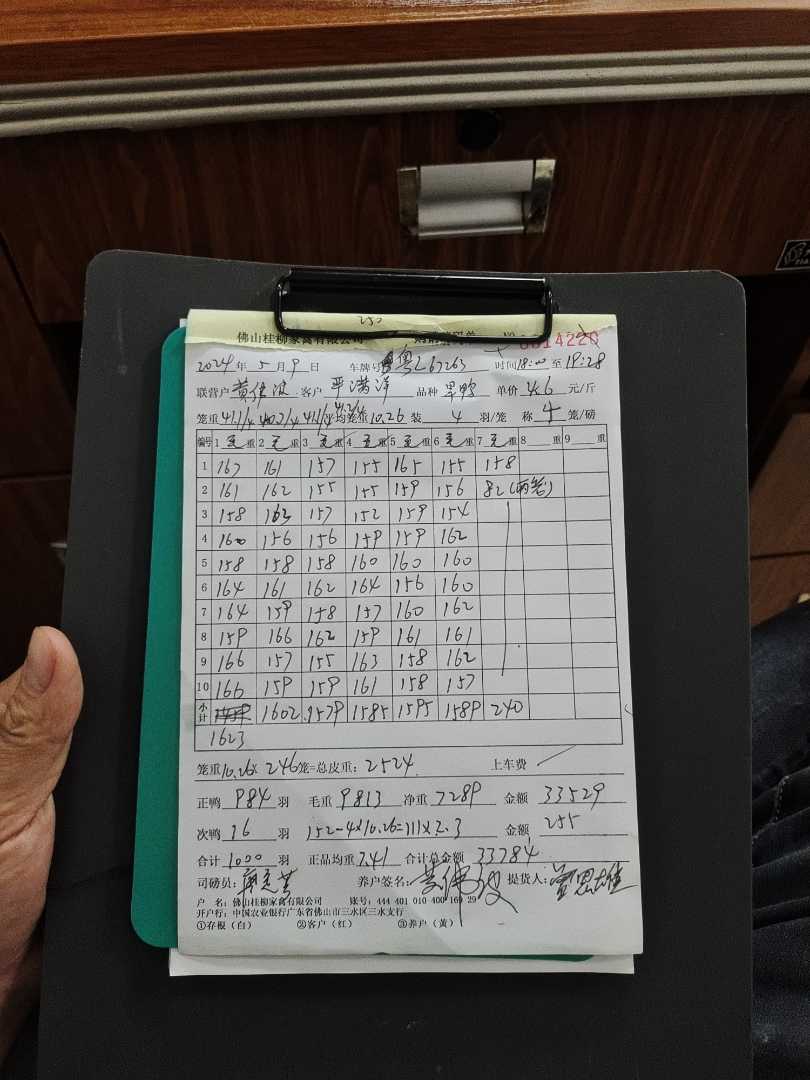 250
佛山桂柳家禽有限公司
0014220
2024 年 5 月 9 日 车牌号 粤L67263 时间18:00至19:28
联营户 黄伟波 客户 严满洋 品种 旱鸭 单价 4.6 元/斤
笼重 41.1/4 40.7/4 41.1/4 41.2/4 平均笼重10.26 装 4 羽/笼 称 4 笼/磅
编号 1 毛 重 2 毛 重 3 毛 重 4 毛 重 5 毛 重 6 毛 重 7 毛 重 8 重 9 重
1 167 161 157 155 165 155 158
2 161 162 155 155 159 156 82(两笼)
3 158 162 157 152 159 154
4 160 156 156 159 159 162
5 158 158 158 160 160 160
6 164 161 162 164 156 160
7 164 159 158 157 160 162
8 159 166 162 159 161 161
9 166 157 155 163 158 162
10 166 159 159 161 158 157
小计 1602 1579 1585 1595 1589 240
1623
笼重10.26× 246笼=总皮重: 2524 上车费
正鸭 984 羽 毛重 9813 净重 7289 金额 33529
次鸭 16 羽 152-4×10.26=111×2.3 金额 255
合计 1000 羽 正品均重 7.41 合计总金额 33784
司磅员: 养户签名: 黄伟波 提货人:
户 名: 佛山桂柳家禽有限公司 账号: 444 401 010 400 169 29
开户行: 中国农业银行广东省佛山市三水区三水支行
①存根(白) ②客户(红) ③养户(黄)